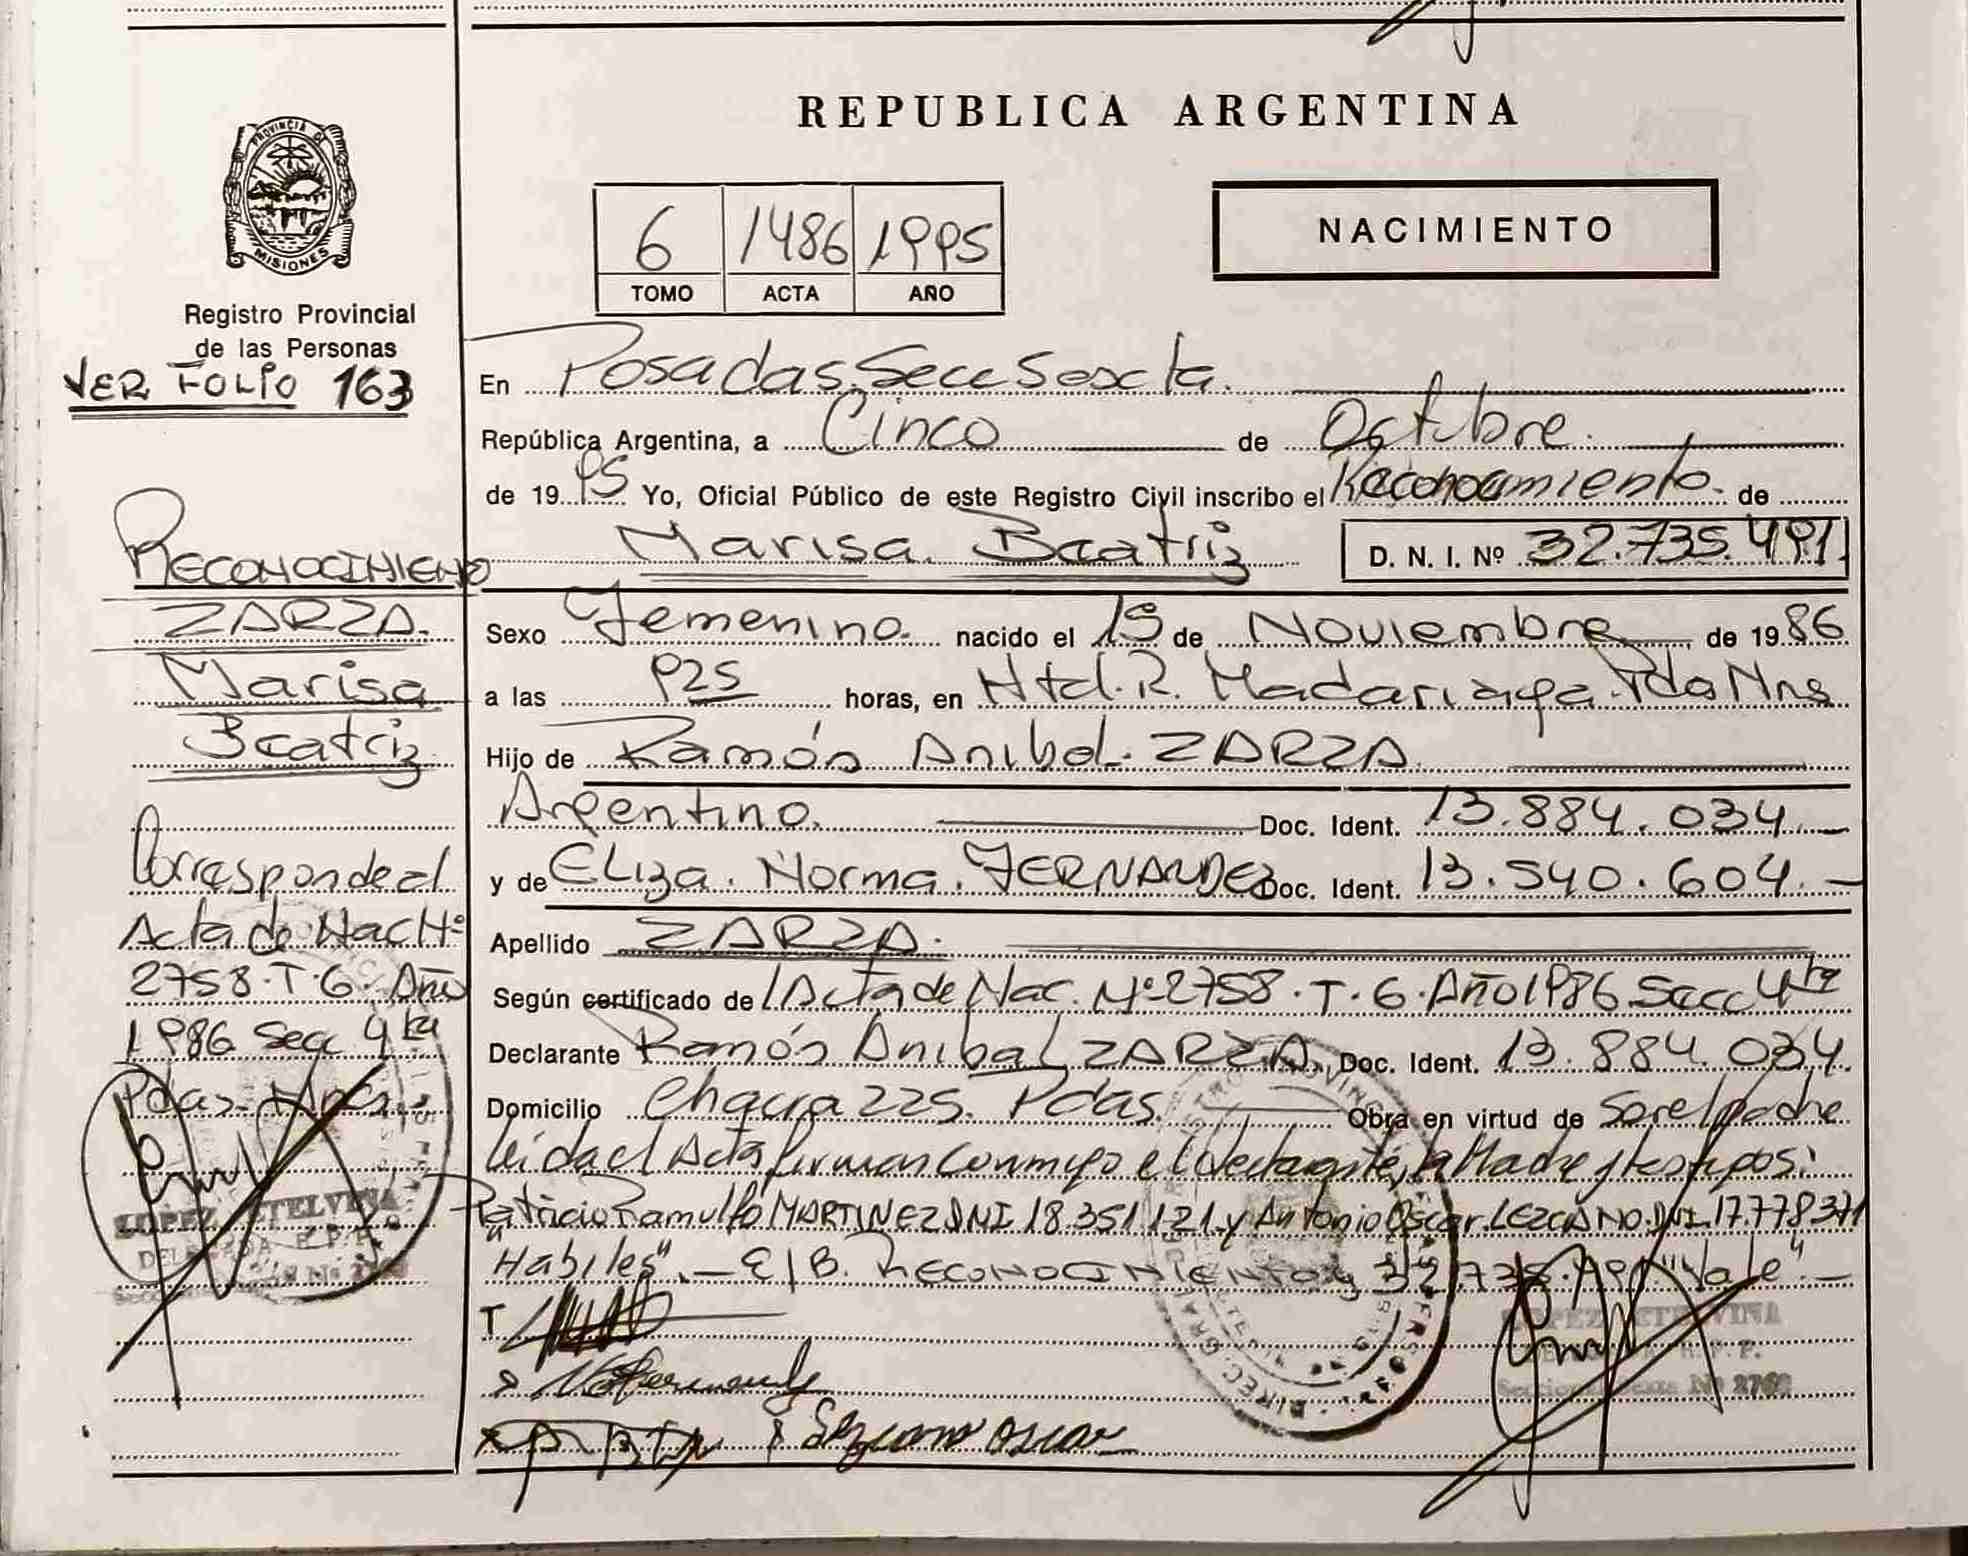 REPUBLICA ARGENTINA
PROVINCIA DE
MISIONES
Registro Provincial
de las Personas
VER FOLIO 163
RECONOCIMIENTO
ZARZA.
Marisa
Beatriz
Corresponde al
Acta de Nac Nº
2758.T.6. Año
1986 Secc 4ta
Pdas. Mnes.
LOPEZ ETELVINA
DELEGADA R.P.P.
6 1486 1995
TOMO ACTA AÑO
NACIMIENTO
En Posadas, Secc Sexta.
República Argentina, a Cinco de Octubre.
de 1995 Yo, Oficial Público de este Registro Civil inscribo el Reconocimiento. de
Marisa. Beatriz D. N. I. Nº 32.735.491.
Sexo Femenino. nacido el 19 de Noviembre de 1986
a las 925 horas, en Htal. R. Madariaga Pdas Mnes
Hijo de Ramón Anibal. ZARZA.
Argentino. Doc. Ident. 13.884.034.
y de Eliza. Norma. FERNANDEZ Doc. Ident. 13.540.604.
Apellido ZARZA.
Según certificado de l'Acta de Nac. Nº 2758.T.6. Año 1986 Secc 4ta
Declarante Ramón Anibal ZARZA. Doc. Ident. 13.884.034.
Domicilio Chacra 225. Pdas. Obra en virtud de Ser el padre
leida el Acta firman conmigo el declarante, la Madre y testigos:
Patricio Ramulfo MARTINEZ DNI 18.351.121 y Antonio Oscar LEZCANO. DNI. 17.778.371
"Habiles".— E/B. RECONOCIMIENTO y 32.735.491 "Vale".—
T
Lezcano Oscar
LOPEZ ETELVINA
R.P.P.